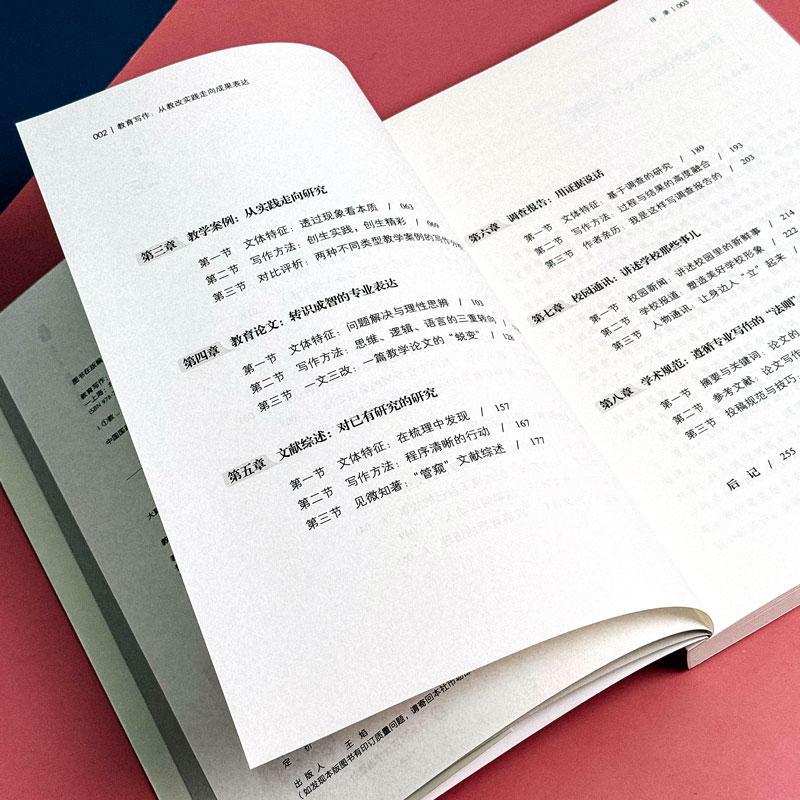 002 | 教育写作：从教改实践走向成果表达
第三章 教学案例：从实践走向研究
第一节 文体特征：透过现象看本质 / 063
第二节 写作方法：创生实践，创生精彩 / 069
第三节 对比评析：两种不同类型教学案例的写作
第四章 教育论文：转识成智的专业表达
第一节 文体特征：问题解决与理性思辨 / 103
第二节 写作方法：思维、逻辑、语言的三重转向
第三节 一文三改：一篇教学论文的“蜕变” / 128
第五章 文献综述：对已有研究的研究
第一节 文体特征：在梳理中发现 / 157
第二节 写作方法：程序清晰的行动 / 167
第三节 见微知著：“管窥”文献综述 / 177
目 录 | 003
第六章 调查报告：用证据说话
第一节 文体特征：基于调查的研究 / 189
第二节 写作方法：过程与结果的高度融合 / 193
第三节 作者亲历：我是这样写调查报告的 / 203
第七章 校园通讯：讲述学校那些事儿
第一节 校园新闻：讲述校园里的新鲜事 / 214
第二节 学校报道：塑造美好学校形象 / 222
第三节 人物通讯：让身边人“立”起来
第八章 学术规范：遵循专业写作的“法则”
第一节 摘要与关键词：论文的
第二节 参考文献：论文写作
第三节 投稿规范与技巧：
后 记 / 255
图书在版编
教育写作：
一上海：
ISBN 978-
中国版
定 价
出 版 人 王 焰
（如发现本版图书有印订质量问题，请寄回本社市场部